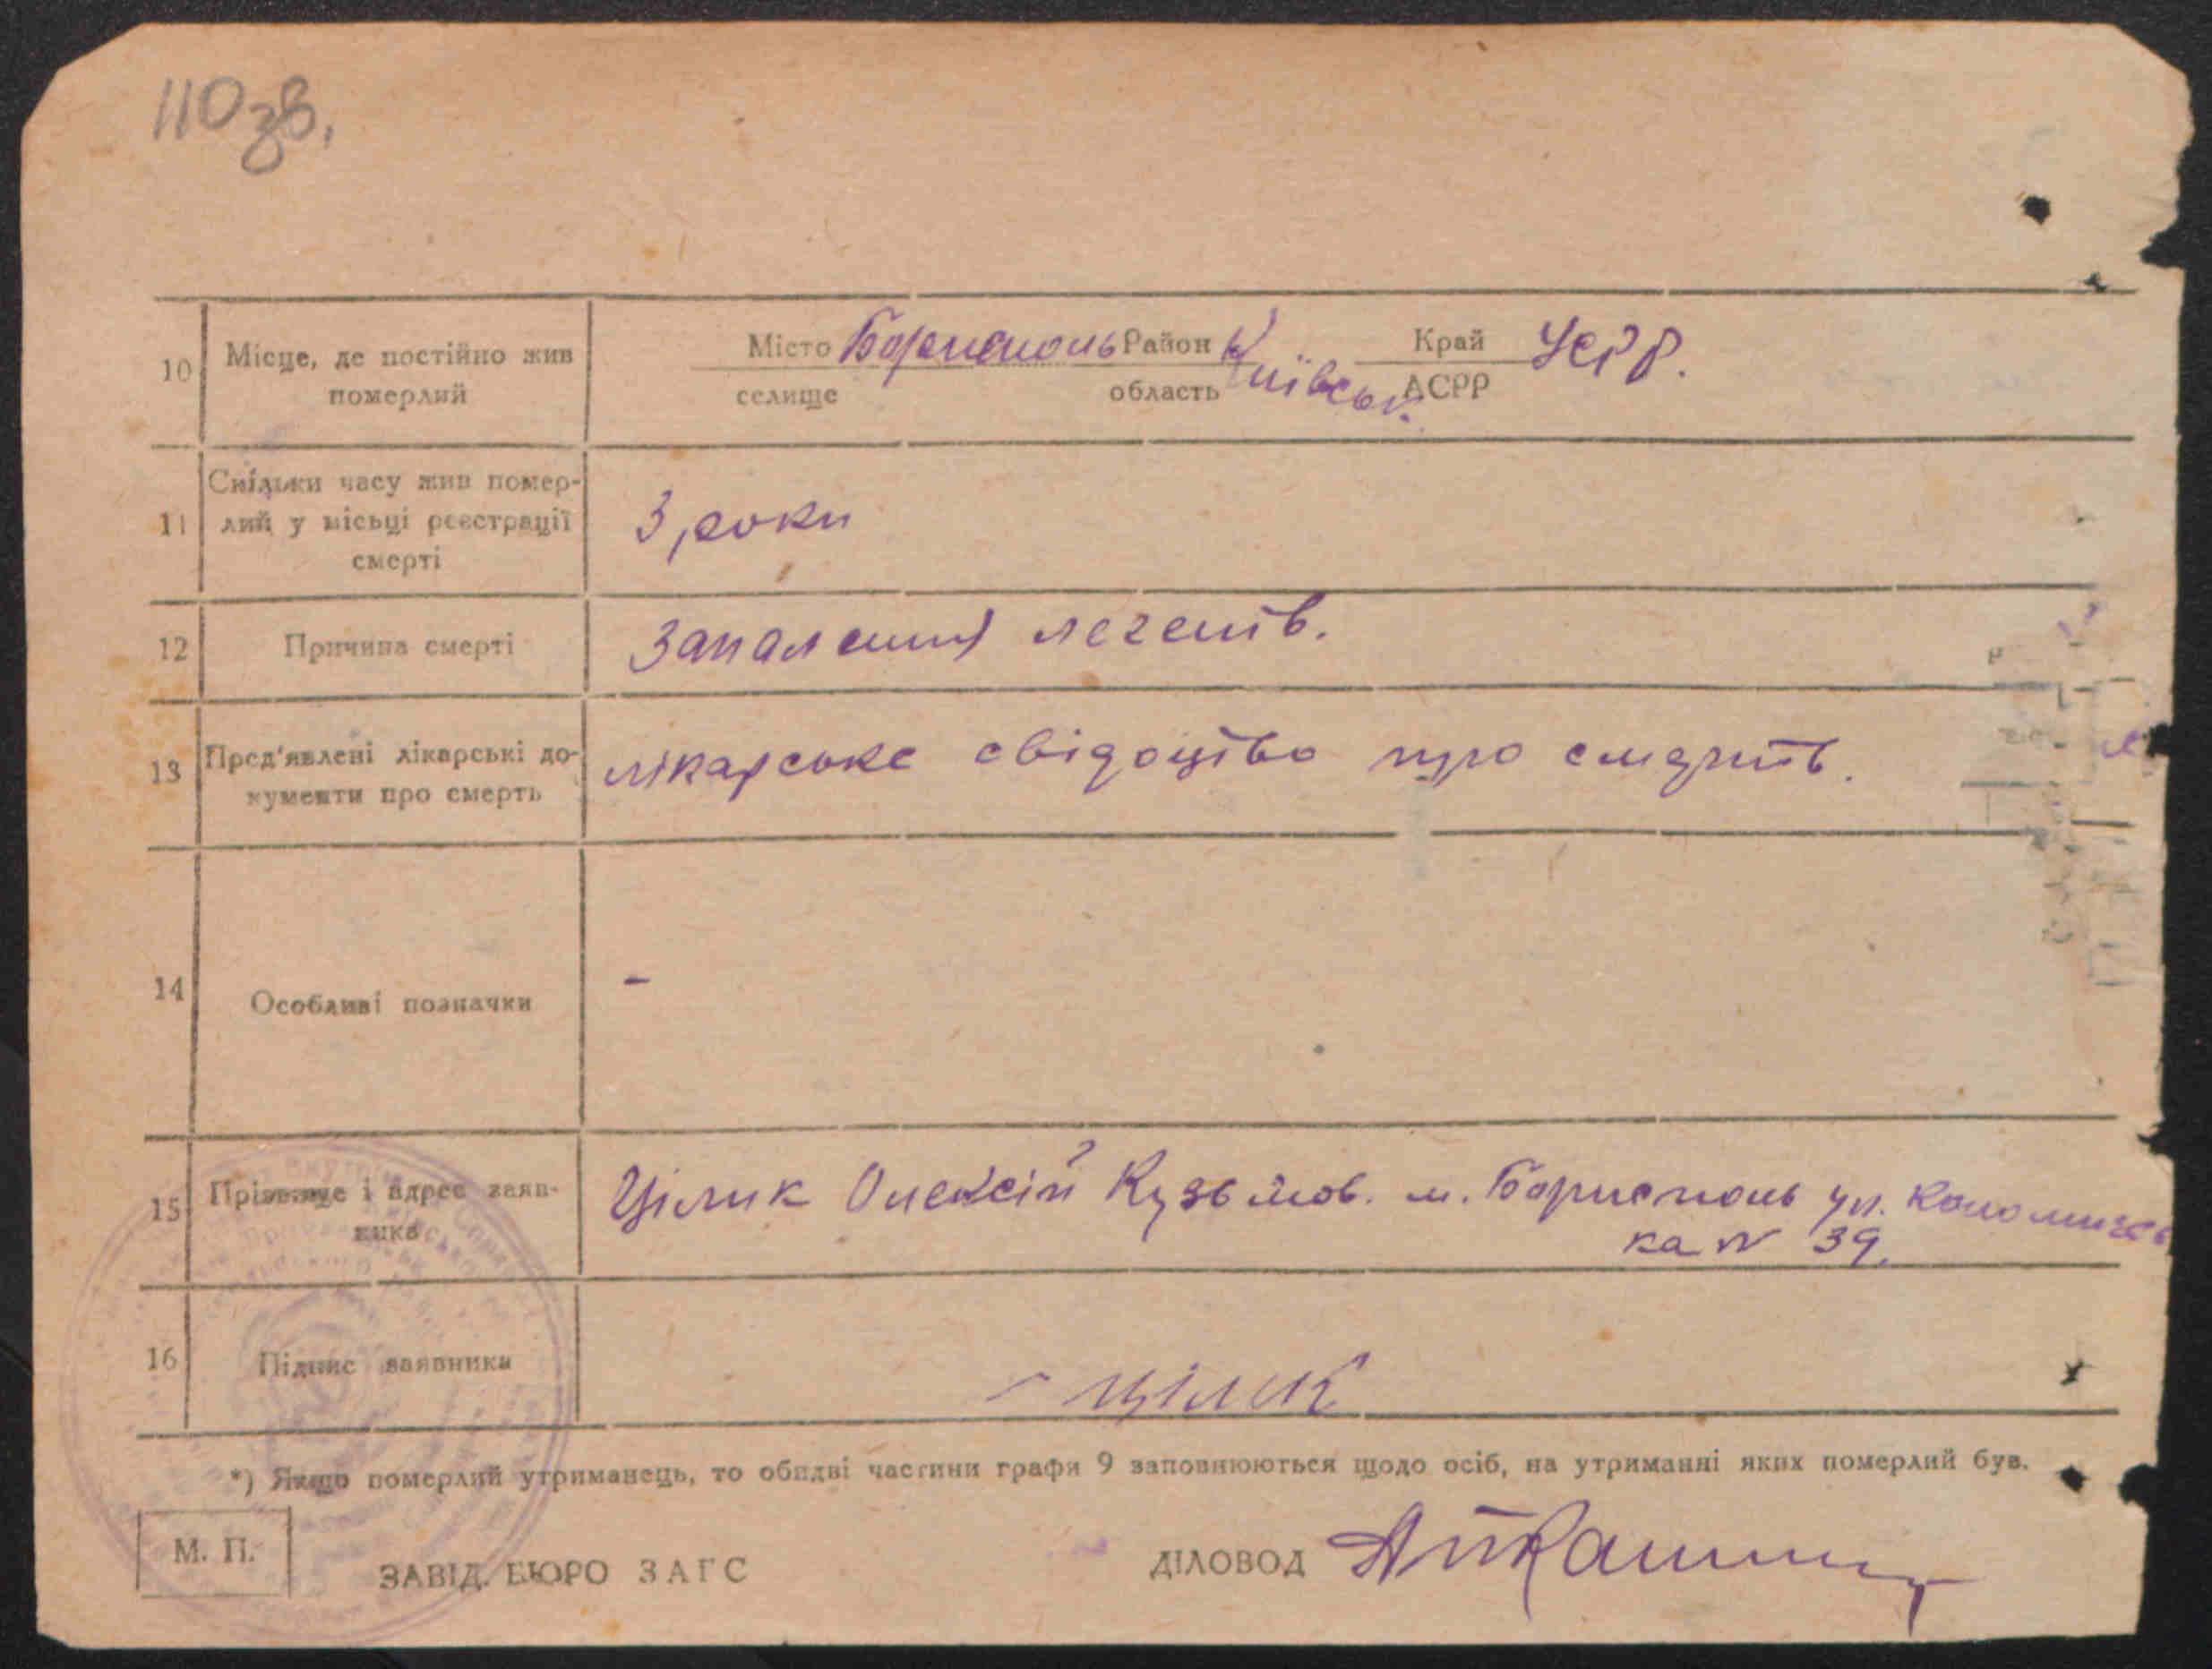 110 зв.
10 Місце, де постійно жив
померлий
Місто Бориспаль Район Київськ. Край УСРР.
селище область АСРР
11 Скільки часу жив помер-
лий у місьці реєстрації
смерті
3 роки
12 Причина смерті
Запалення легенів.
13 Пред'явлені лікарські до-
кументи про смерть
лікарське свідоцтво про смерть.
14 Особливі позначки
-
15 Прізвище і адрес заяв-
ника
Цілик Олексій Кузьмов. м. Бориспаль ул.
ка N 39.
16 Підпис заявника
Цілик
*) Якщо померлий утриманець, то обидві частини графи 9 заповнюються щодо осіб, на утриманні яких померлий був.
М. П.
ЗАВІД. БЮРО ЗАГС
ДІЛОВОД